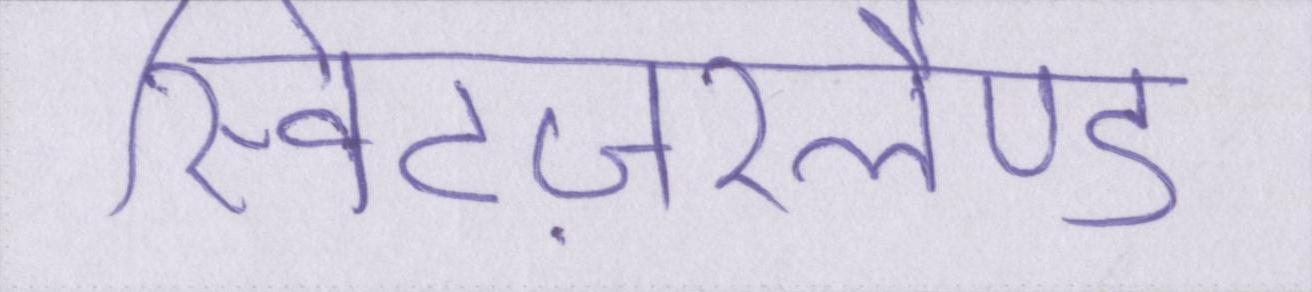 स्विटज़रलैण्ड